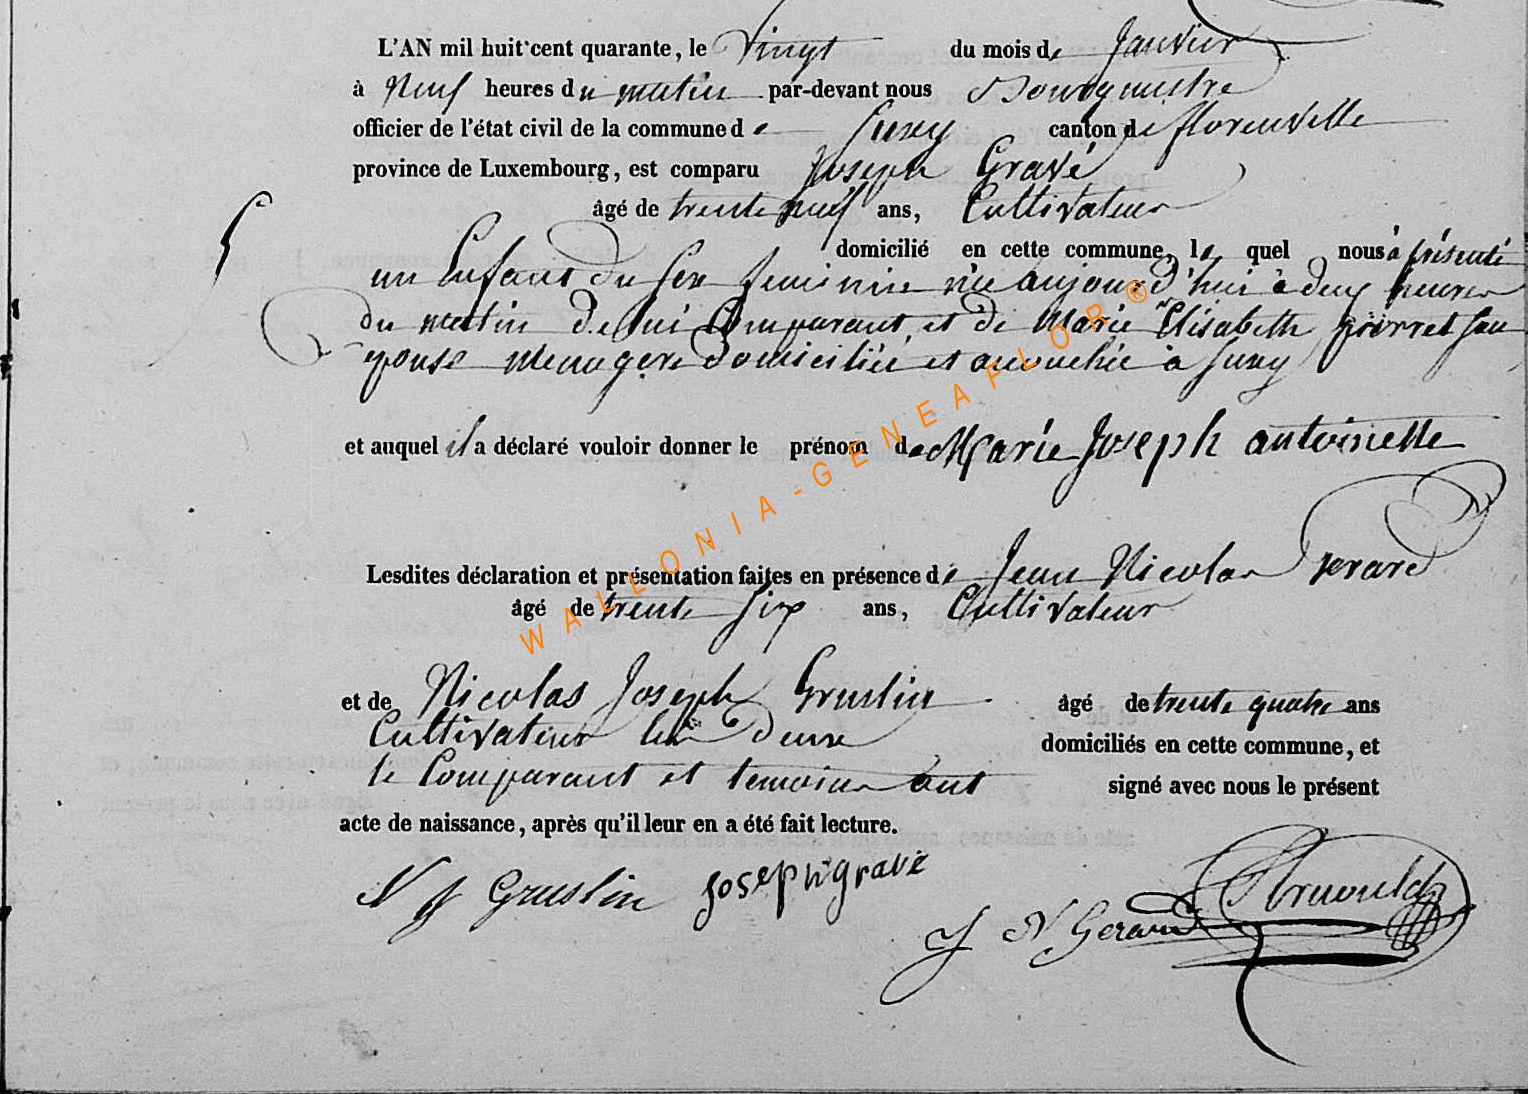 L'AN mil huit cent quarante, le Vingt du mois de Janvier
à Neuf heures du matin par-devant nous Bourgmestre
officier de l'état civil de la commune de Suxy canton de florenville
province de Luxembourg, est comparu Joseph Gravé
âgé de trente neuf ans, Cultivateur
5 domicilié en cette commune, le quel nous à présenté
un Enfant du sex feminin née aujourd'hui à deux heures
du matin de lui Comparant et de Marie Elisabeth pierret son
epouse menagere domiciliée et accouchée à Suxy
et auquel il a déclaré vouloir donner le prénom de Marie Joseph antoinette
WALLONIA-GENEAFLOR®
Lesdites déclaration et présentation faites en présence de Jean Nicolas gerard
âgé de trente six ans, Cultivateur
et de Nicolas Joseph Gruslin âgé de trente quatre ans
Cultivateur les deux domiciliés en cette commune, et
le Comparant et temoins ont signé avec nous le présent
acte de naissance, après qu'il leur en a été fait lecture.
N J Gruslin Joseph grave
J N Gerard